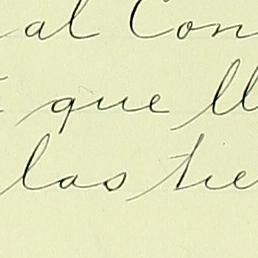 al Con
que ll
las tie